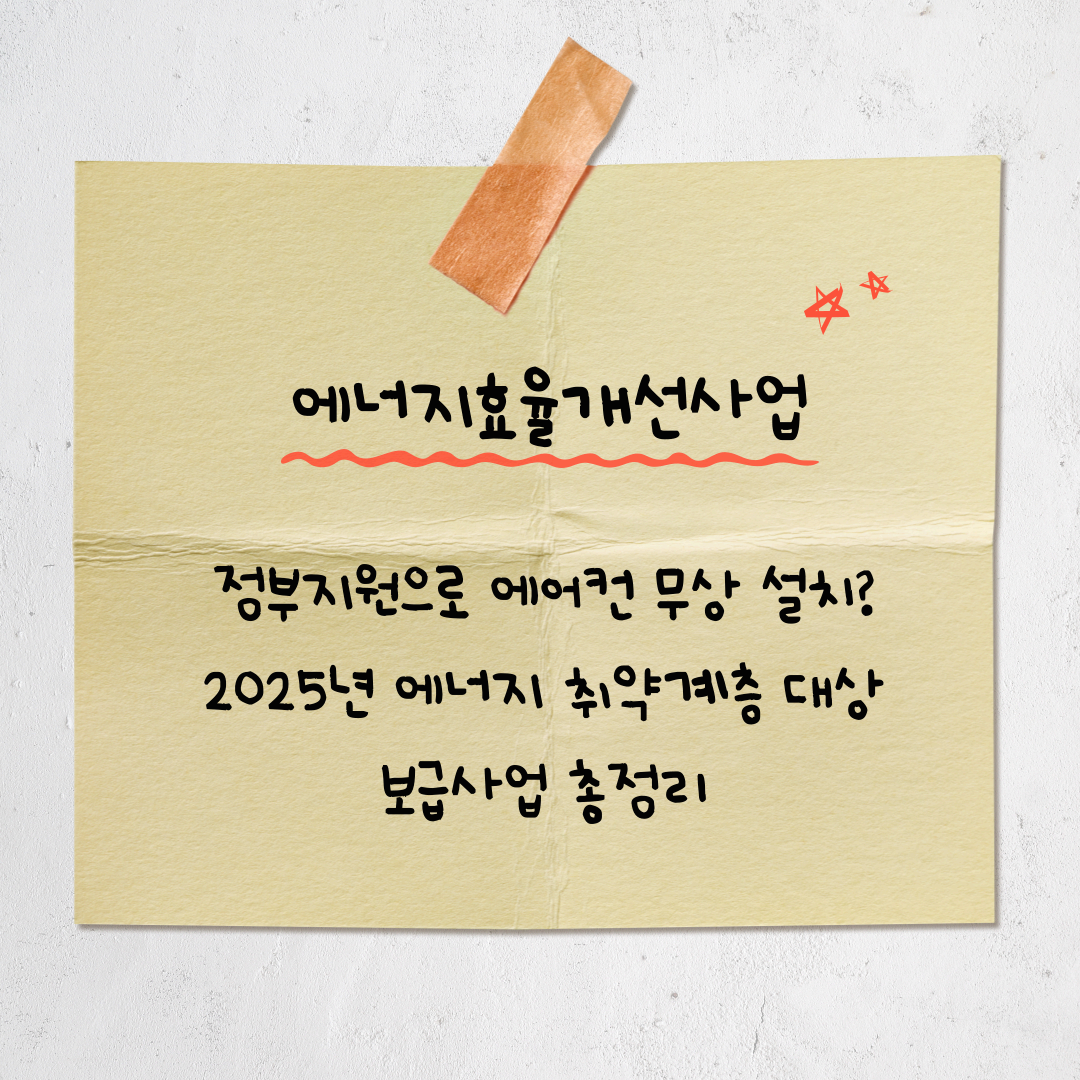 에너지효율개선사업
정부지원으로 에어컨 무상 설치?
2025년 에너지 취약계층 대상
보급사업 총정리